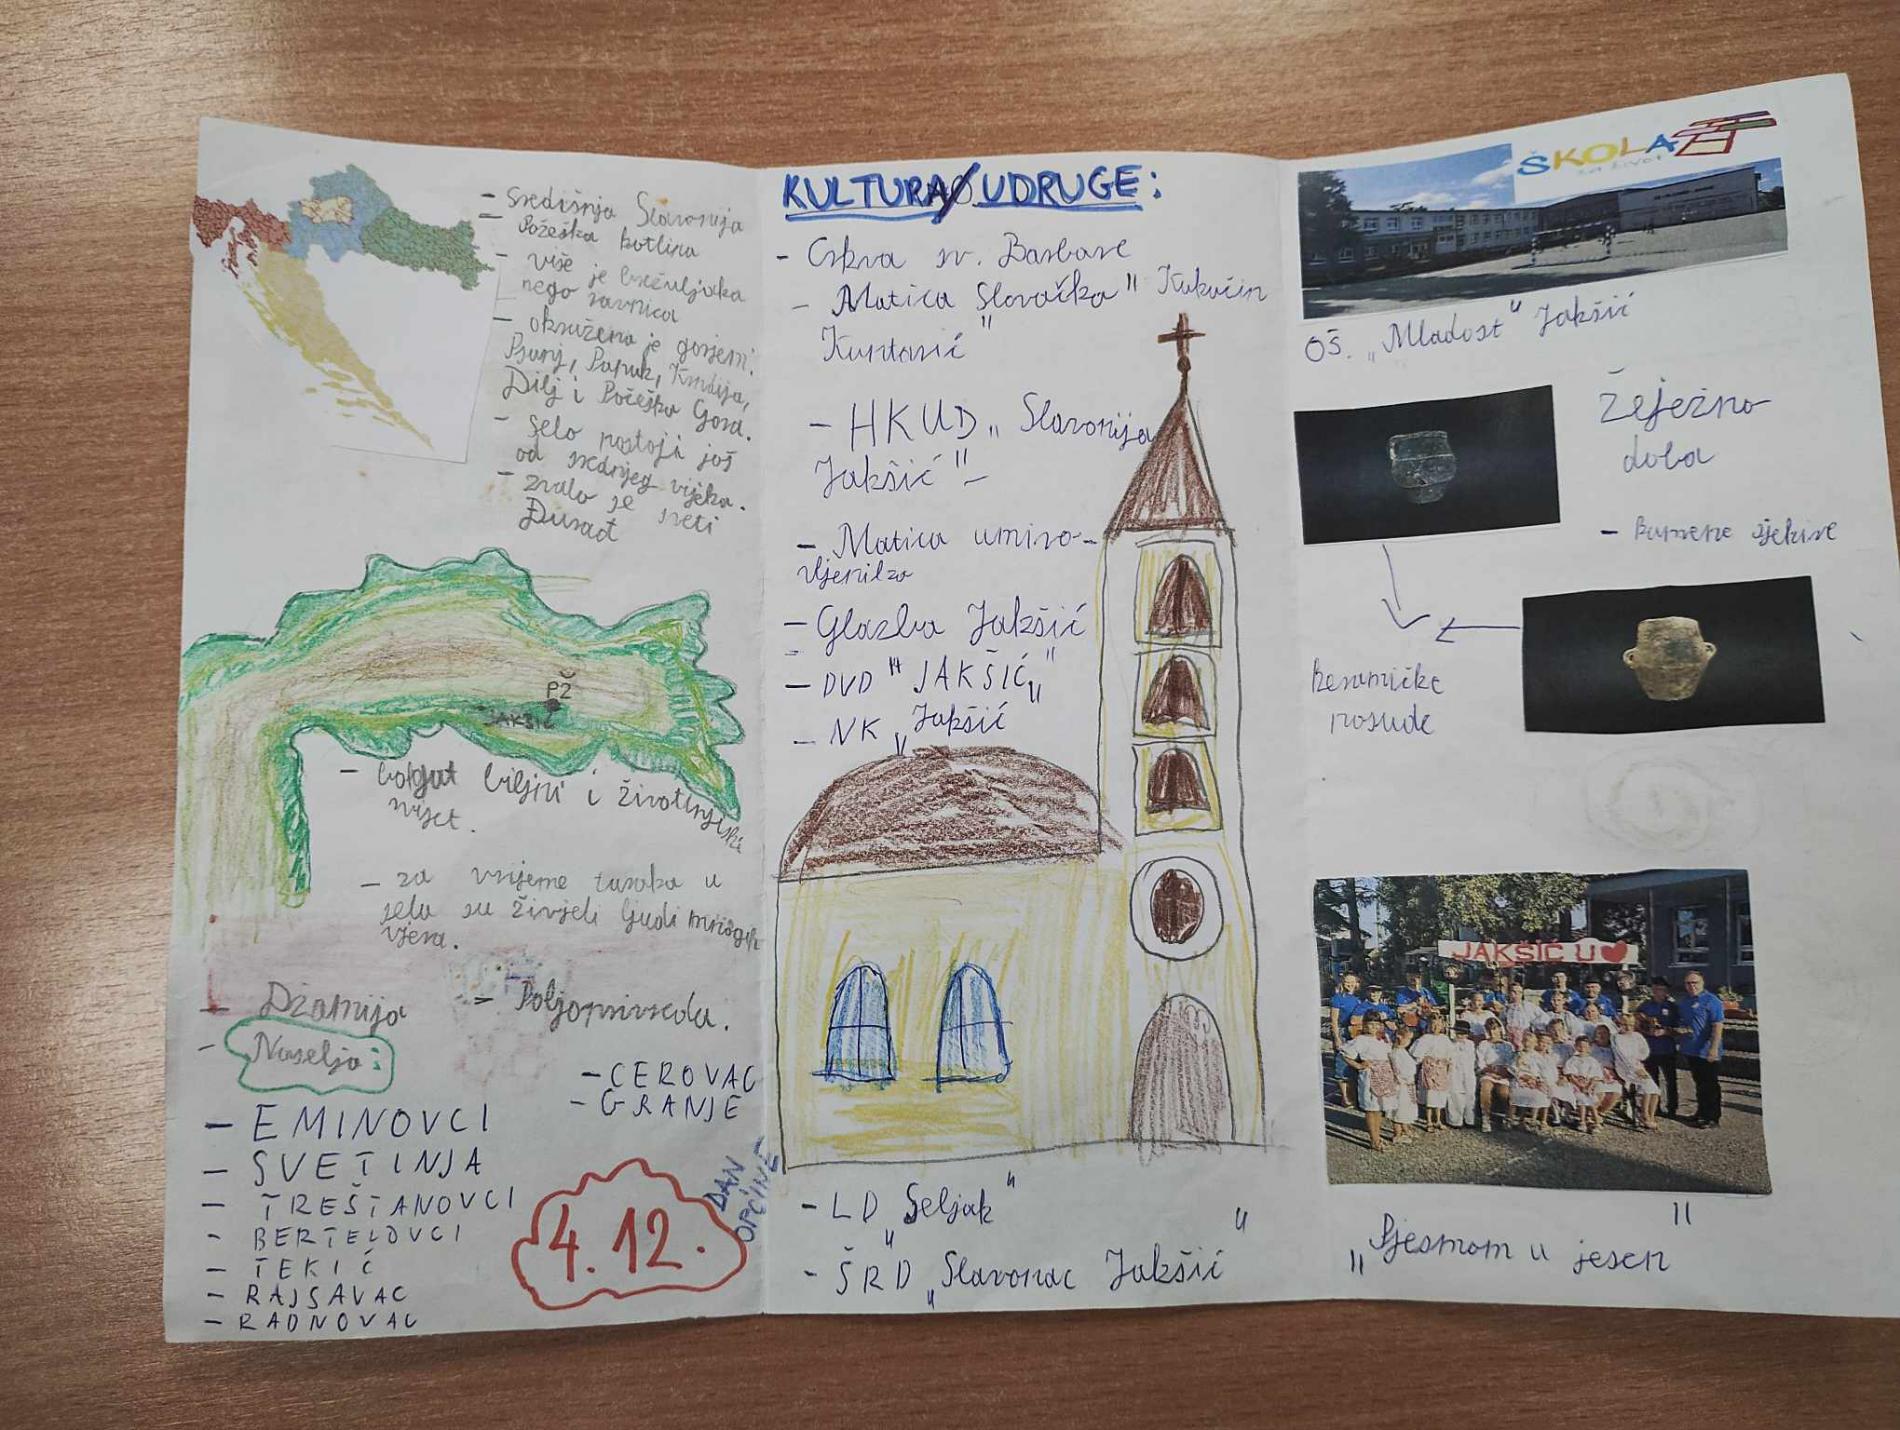 - središnja Slavonija
- Požeška kotlina
- više je brežuljaka
nego ravnica
- okružena je gorjem:
Psunj, Papuk, Krndija,
Dilj i Požeška Gora.
- selo postoji još
od srednjeg vijeka.
- zvalo se sveti
Đurađ
PŽ
JAKŠIĆ
- bogat biljni i životinjski
svijet.
- za vrijeme turaka u
selu su živjeli ljudi mnogih
vjera.
- Džamija
- Poljoprivreda.
- Naselja:
- EMINOVCI
- SVETINJA
- TREŠTANOVCI
- BERTELOVCI
- TEKIĆ
- RAJSAVAC
- RADNOVAC
- CEROVAC
- GRANJE
4.12.
DAN
OPĆINE
KULTURA/UDRUGE:
- Crkva sv. Barbare
- Matica Slovačka"
- HKUD „Slavonija
Jakšić"-
- Matica umiro-
vljenika
- Glazba Jakšić
- DVD "JAKŠIĆ„
- NK „Jakšić"
- LD „Seljak"
- ŠRD „Slavonac Jakšić"
ŠKOLA
za život
OŠ. „Mladost" Jakšić
Željezno
doba
- kamene sjekire
keramičke
posude
JAKŠIĆ U
„Pjesmom u jesen"